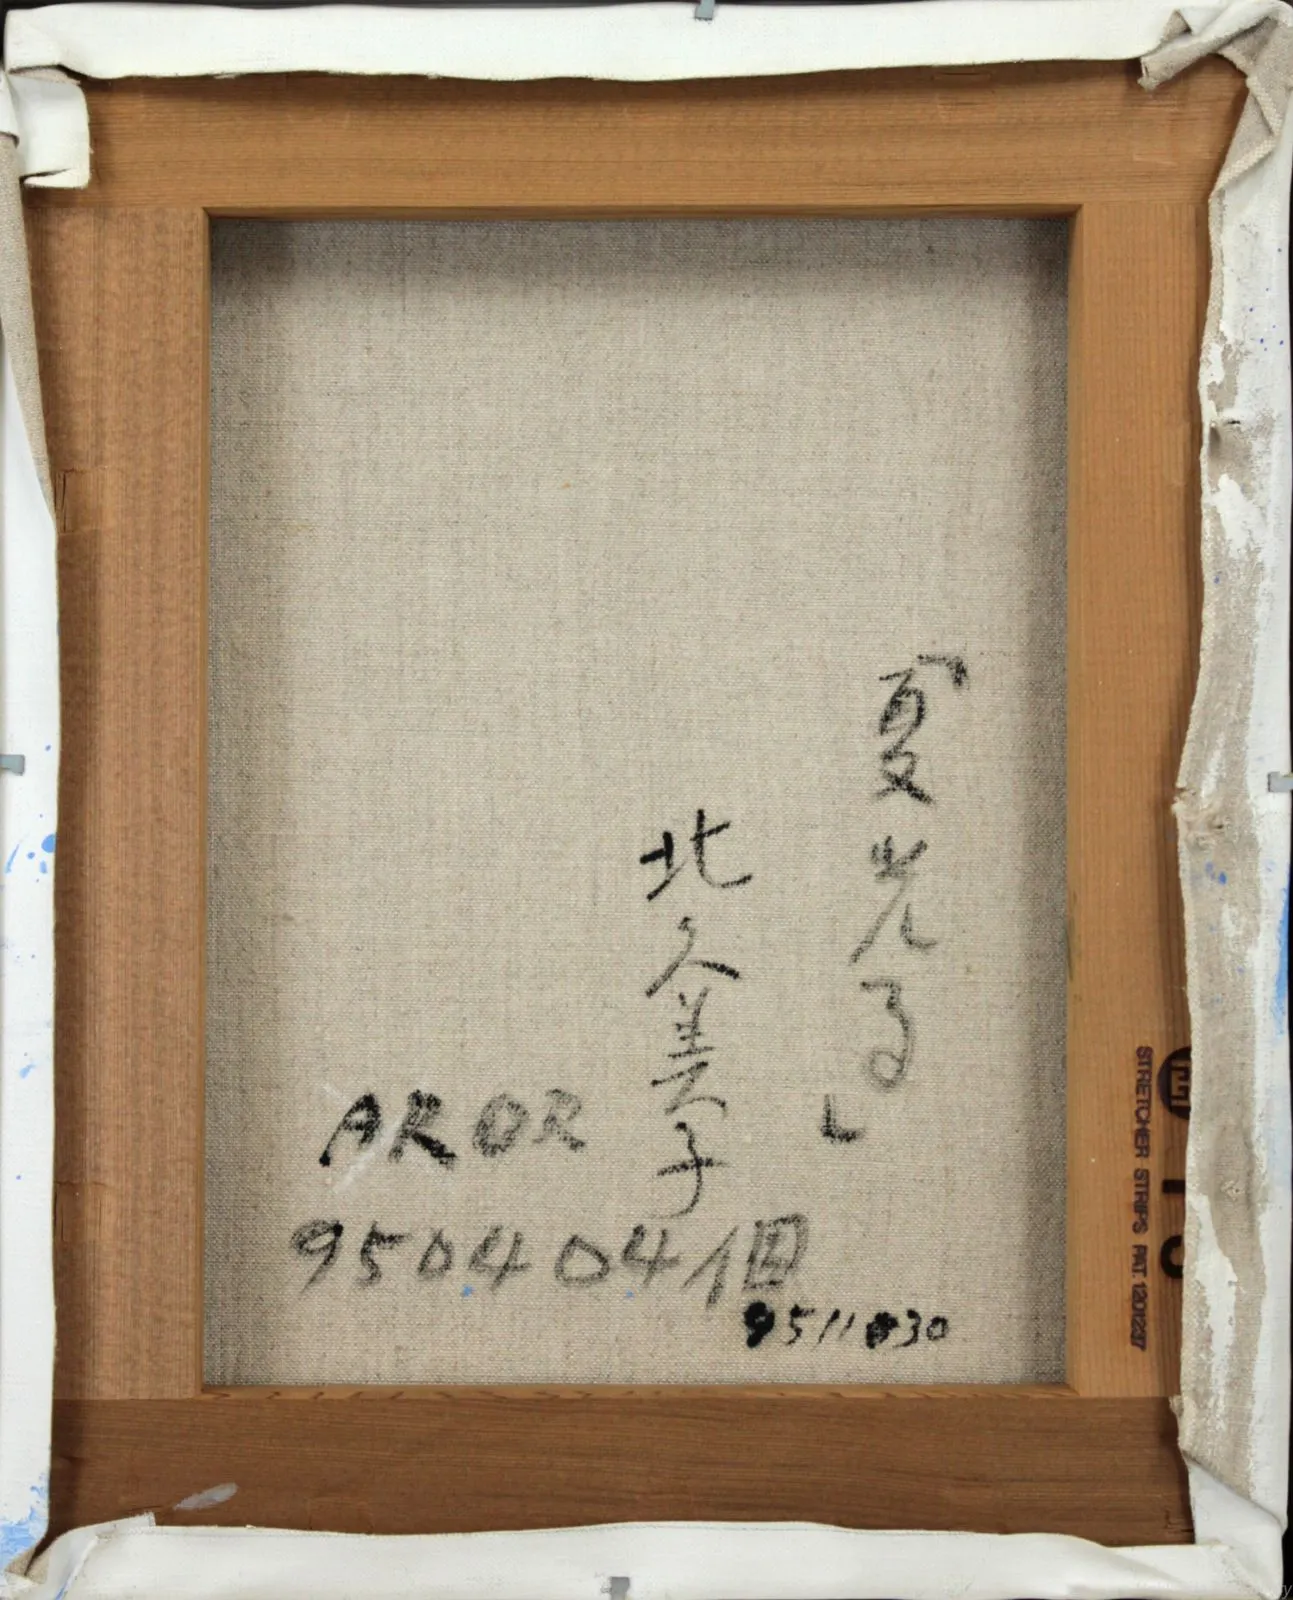 「夏光る」
北久美子
AROR
950404個
9511030
STRETCHER STRIPS PAT. 1201237